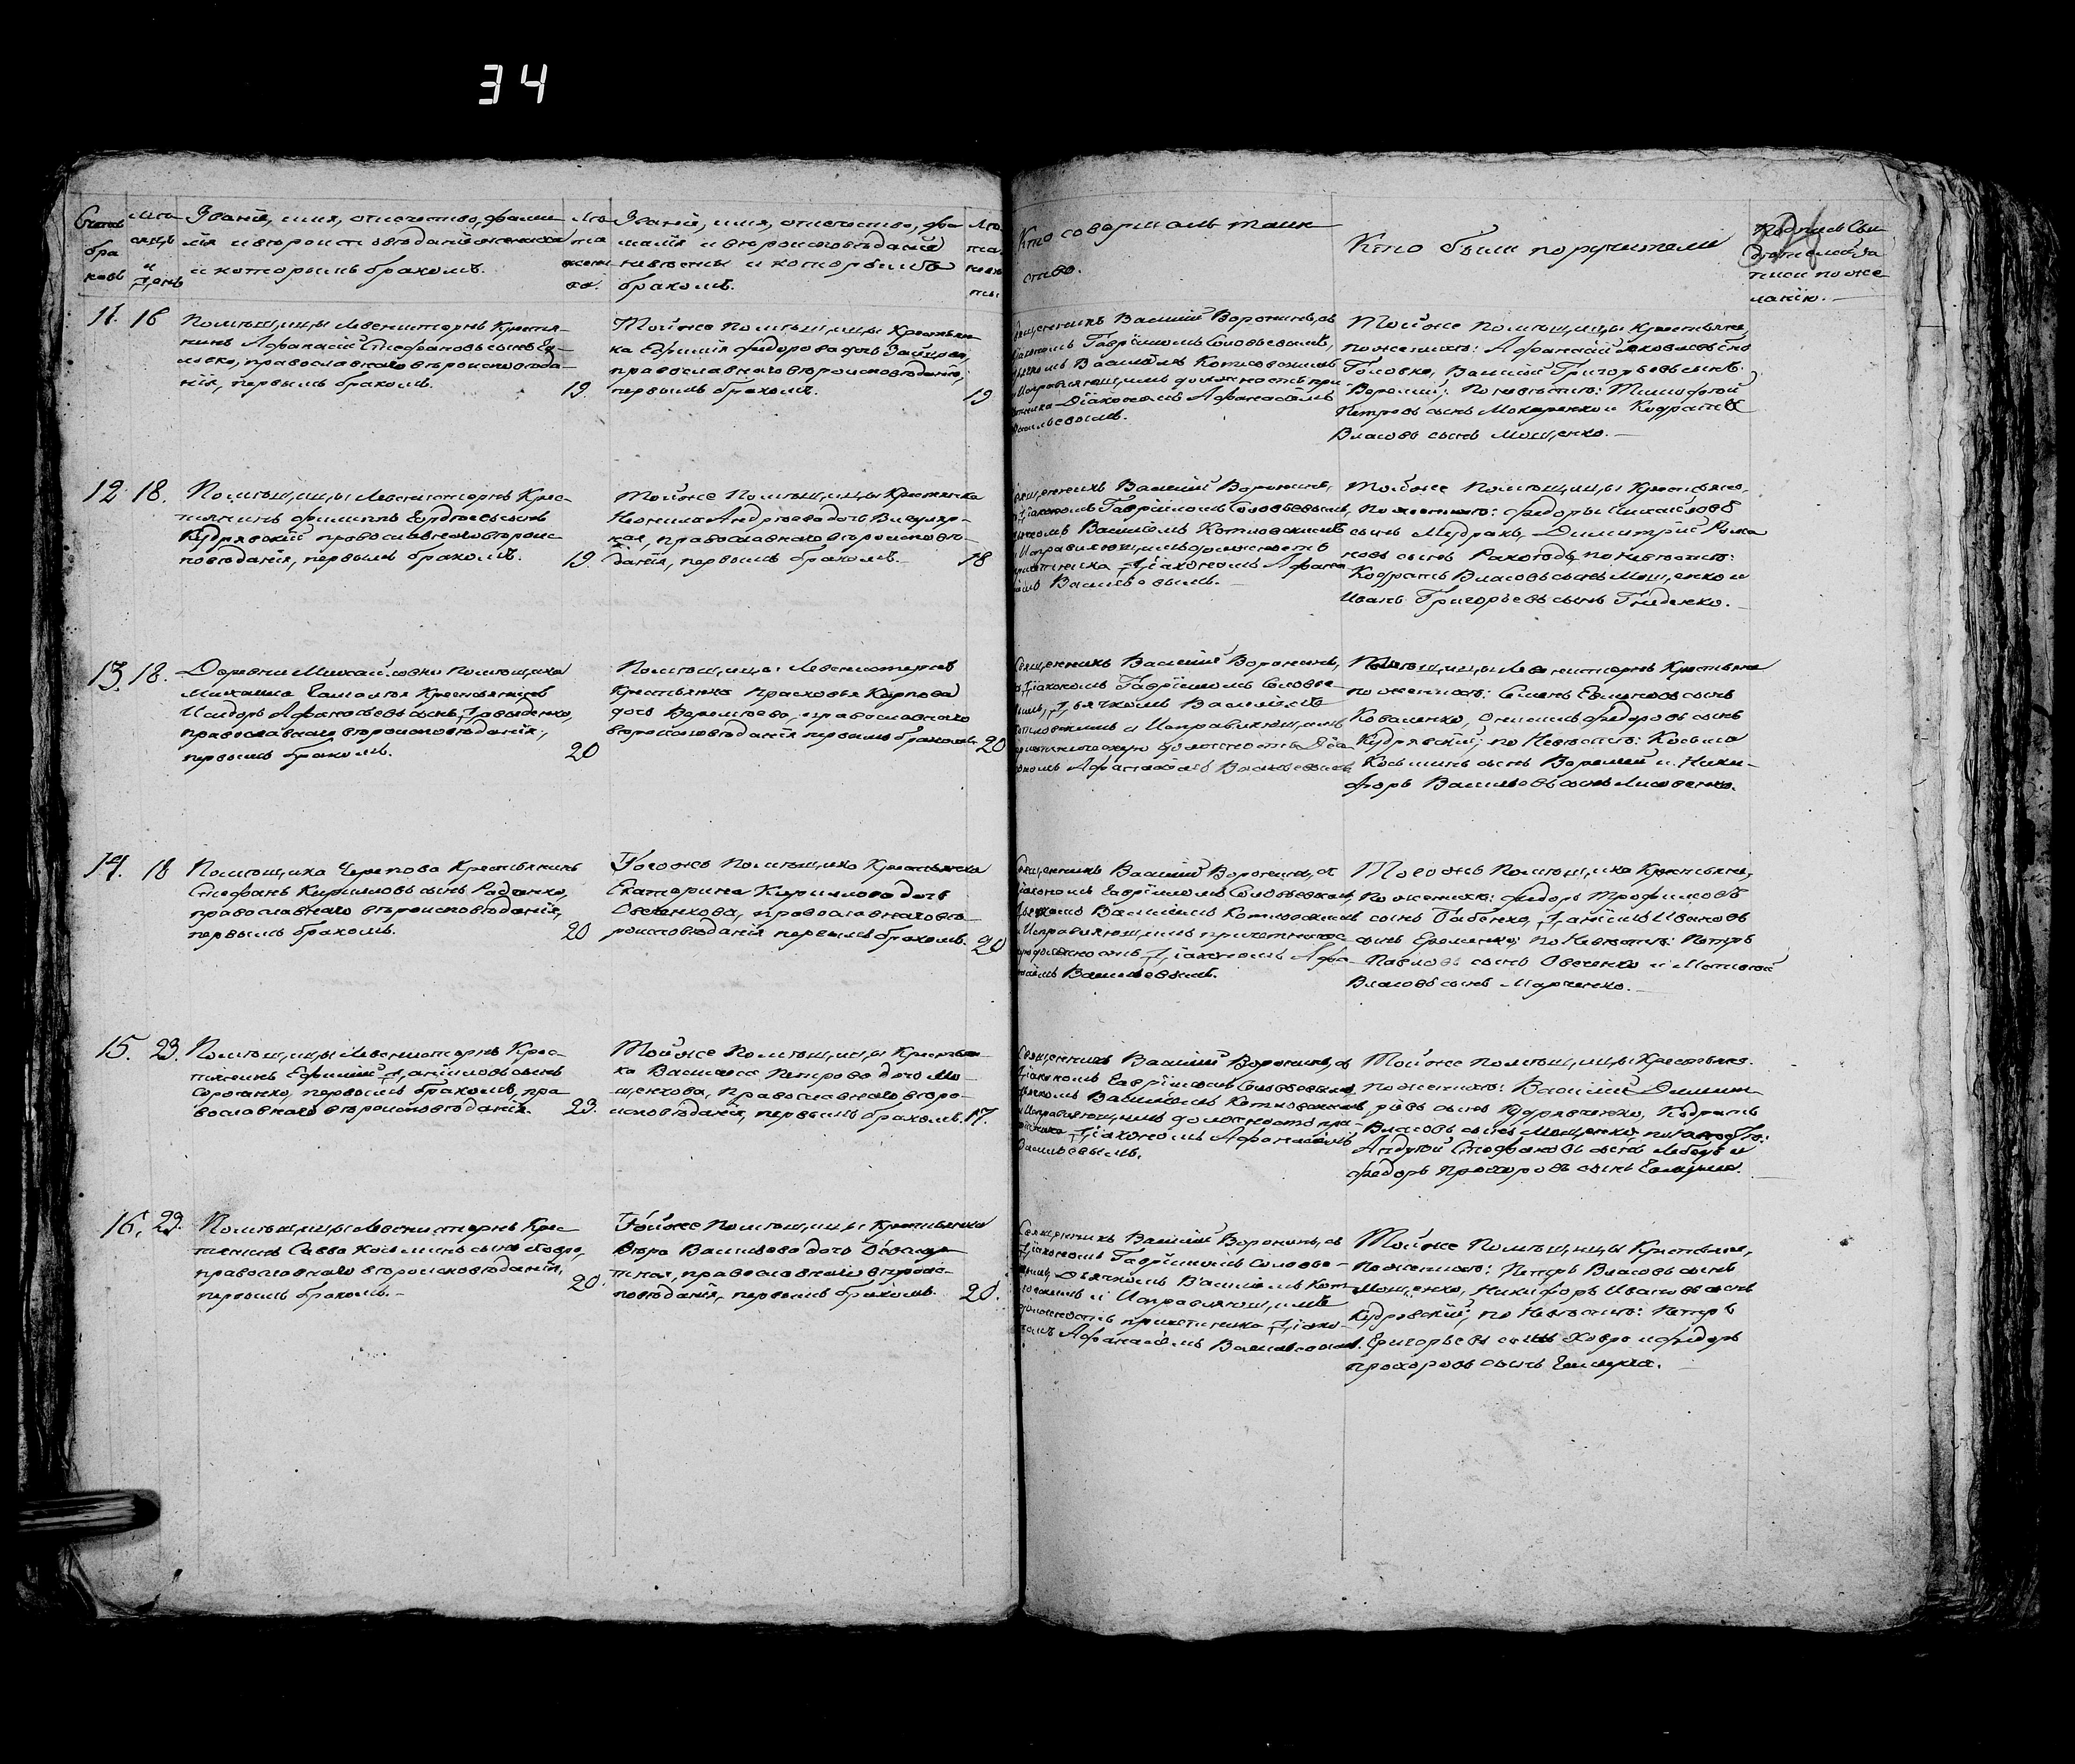 34
Счетъ бра ковъ
Мѣся сяцъ и день
Званіе, имя, отчество, фами
лія и вѣроисповѣданіе жениха
и которымъ бракомъ.
Лѣ та жени ха.
Званіе, имя, отчество, фа
милія и вѣроисповѣданіе
невѣсты и которымъ
бракомъ.
Лѣ та невѣ сты
Кто совершалъ таин
ство.
Кто были поручители
Подпись Сви
дѣтелей за
писи по же
ланію.
11. 16
Помѣщицы Левенштернъ Крестья-
нинъ Афанасій Стефановъ сынъ
православнаго вѣроисповѣда-
нія, первымъ бракомъ.
19.
Тойже помѣщицы Крестьян-
ка Ефимія Федорова дочь
православнаго вѣроисповѣданія,
первымъ бракомъ.
19
Священникъ Василій Воронинъ, съ
Діакономъ Гавріиломъ Соловьевымъ,
Дьячкомъ Василіемъ Котловскимъ
и Исправляющимъ должность при
четника Діакономъ Афанасіемъ
Васильевымъ.
Тойже Помѣщицы Крестьяне,
по женихѣ: Афанасій Яковлевъ сынъ
Головко, Василій Григорьевъ сынъ
Веремій; По невѣстѣ: Тимофей
Петровъ сынъ Макаренко и Кодратъ
Власовъ сынъ Мощенко.
12 18.
Помѣщицы Левенштернъ Крес-
тьянинъ Филиппъ сынъ
Кудрявскій православнаго вѣроис-
повѣданія, первымъ бракомъ.
19.
Тойже Помѣщицы Крестьянка
Неонила Андреева дочь
православнаго вѣроисповѣ-
данія, первымъ бракомъ.
18
Священникъ Василій Воронинъ,
съ Діакономъ Гавріиломъ Соловьевымъ,
Дьячкомъ Василіемъ Котловскимъ
и Исправляющимъ должность
причетника Діакономъ Афана
сіемъ Васильевымъ.
Тойже Помѣщицы Крестьяне,
по женихѣ: Федоръ Михайловъ
сынъ Мудракъ, Димитрій Рома
новъ сынъ по невѣстѣ:
Кодратъ Власовъ сынъ Мощенко и
Иванъ Григорьевъ сынъ Гнеденко.
13. 18.
Деревни Михайловки помѣщика
Михаила Гамалѣя Крестьянинъ
Исидоръ Афанасьевъ сынъ Давиденко,
православнаго вѣроисповѣданія,
первымъ бракомъ.
20
Помѣщицы Левенштернъ
Крестьянка Прасковья Карпова
дочь Веремѣева, православнаго
вѣроисповѣданія первымъ бракомъ.
20
Священникъ Василій Воронинъ,
съ Діакономъ Гавріиломъ Соловье-
вымъ, Дьячкомъ Василіемъ
Котловскимъ и Исправляющимъ
причетническую должность Діа
кономъ Афанасіемъ Васильевымъ
Помѣщицы Левенштернъ Крестьяне
по женихѣ: Семенъ сынъ
Коваленко, Онисимъ Федоровъ сынъ
Кудрявскій; по Невѣстѣ: Косьма
Косьминъ сынъ Веремій и Ники-
форъ Васильевъ сынъ Лисовенко.
14. 18
Помѣщика Черепова Крестьянинъ
Стефанъ Кириловъ сынъ Раденко,
православнаго вѣроисповѣданія,
первымъ бракомъ.
20
Тогожъ Помѣщика Крестьянка
Екатерина Кириллова дочь
Овченкова, православнаго вѣ-
роисповѣданія первымъ бракомъ.
20
Священникъ Василій Воронинъ, съ
Діакономъ Гавріиломъ Соловьевымъ
Дьячкомъ Василіемъ Котловскимъ
и Исправляющимъ причетническ
ую должность Діакономъ Афа-
насіемъ Васильевымъ.
Тогожъ Помѣщика Крестьяне,
По женихѣ: Федоръ Трофимовъ
сынъ Бабенко, Даніилъ Ивановъ
сынъ Еременко; по Невѣстѣ: Петръ
Павловъ сынъ Овченко и Матвѣй
Власовъ сынъ Марченко.
15. 23.
Помѣщицы Левенштернъ Крес-
тьянинъ Ефимій Даніиловъ сынъ
Сороченко, первымъ бракомъ, пра
вославнаго вѣроисповѣданія.
23.
Тойже Помѣщицы Крестьян-
ка Василиса Петрова дочь Мо-
щенкова, Православнаго вѣро-
исповѣданія, первымъ бракомъ.
17.
Священникъ Василій Воронинъ, съ
Діакономъ Гавріиломъ Соловьевымъ
Дьячкомъ Василіемъ Котловскимъ
и Исправляющимъ должность при-
четника Діакономъ Афанасіемъ
Васильевымъ.
Тойже помѣщицы Крестьяне.
по женихѣ: Василій Димит
ріевъ сынъ Кудрявченко, Кодратъ
Власовъ сынъ Мощенко, по невѣстѣ:
Андрей Стефановъ сынъ Лебедь и
Федоръ Прохоровъ сынъ
16. 23.
Помѣщицы Левенштернъ Крес
тьянинъ Савва Косьминъ сынъ Ховро,
православнаго вѣроисповѣданія,
первымъ бракомъ.
20.
Тойже Помѣщицы Крестьянка
Вѣра Васильева дочь
православнаго вѣроис-
повѣданія, первымъ бракомъ.
20.
Священникъ Василій Воронинъ, съ
Діакономъ Гавріиломъ Соловье-
вымъ, Дьячкомъ Василіемъ Кот
ловскимъ и Исправляющимъ
должность причетника Діако-
номъ Афанасіемъ Васильевымъ.
Тойже Помѣщицы Крестьяне,
По женихѣ: Петръ Власовъ сынъ
Мощенко, Никифоръ Ивановъ сынъ
Кудровскій; по Невѣстѣ: Петръ
Григорьевъ сынъ Ховро и Федоръ
Прохоровъ сынъ